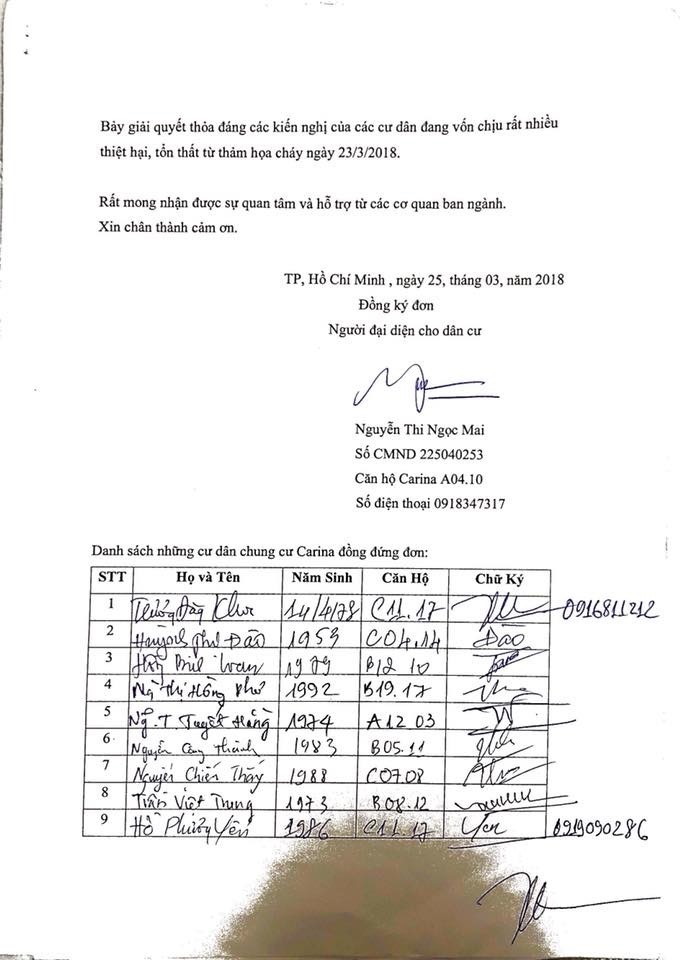 Bảy giải quyết thỏa đáng các kiến nghị của các cư dân đang vốn chịu rất nhiều
thiệt hại, tổn thất từ thảm họa cháy ngày 23/3/2018.
Rất mong nhận được sự quan tâm và hỗ trợ từ các cơ quan ban ngành.
Xin chân thành cảm ơn.
TP, Hồ Chí Minh , ngày 25, tháng 03, năm 2018
Đồng ký đơn
Người đại diện cho dân cư
Nguyễn Thi Ngọc Mai
Số CMND 225040253
Căn hộ Carina A04.10
Số điện thoại 0918347317
Danh sách những cư dân chung cư Carina đồng đứng đơn:
STT Họ và Tên Năm Sinh Căn Hộ Chữ Ký
1 14/4/78 C11.17 0916811212
2 Huỳnh Đào 1953 C04.14 Đào
3 1979 B12 10
4 Ng Thị Hồng 1992 B19.17
5 Ng.T. Tuyết Hằng 1974 A12 03
6 Nguyễn Công Thành 1983 B05.11
7 Nguyễn Chiến Thắng 1988 C07.08
8 Trần Việt Trung 1973 B08.12
9 Hồ Phượng Yến 1986 C11.17 Yến 0919090286